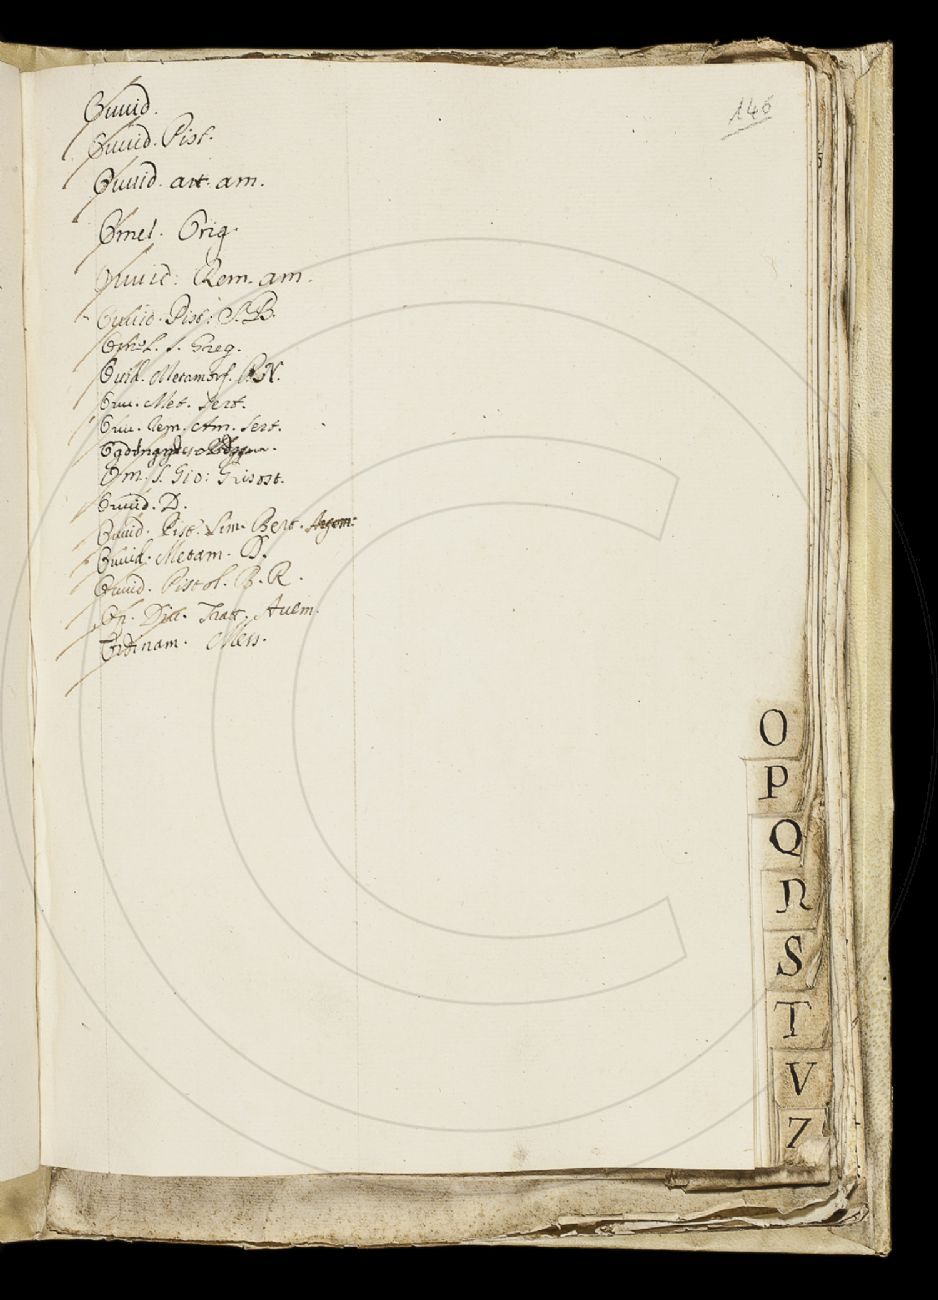 146
Ouuid.
Ouuid. Pist.
Ouuid. art. am.
Omel. Orig.
Ouuid: Rem. am.
Ouuid. Pist: S.B.
Omel. S. Greg.
Ouid. Metamorf. P.N.
Ouu. Met. Sert.
Ouu. Rem. Am. Sert.
Om. S. Gio: Grisost.
Ouuid. D.
Ouuid. Pist. Sim. Bert.
Ouuid. Metam. D.
Ouuid. Pistol. B. R.
Tratt. Auem.
Ordinam. Mess.
O
P
Q
R
S
T
V
Z